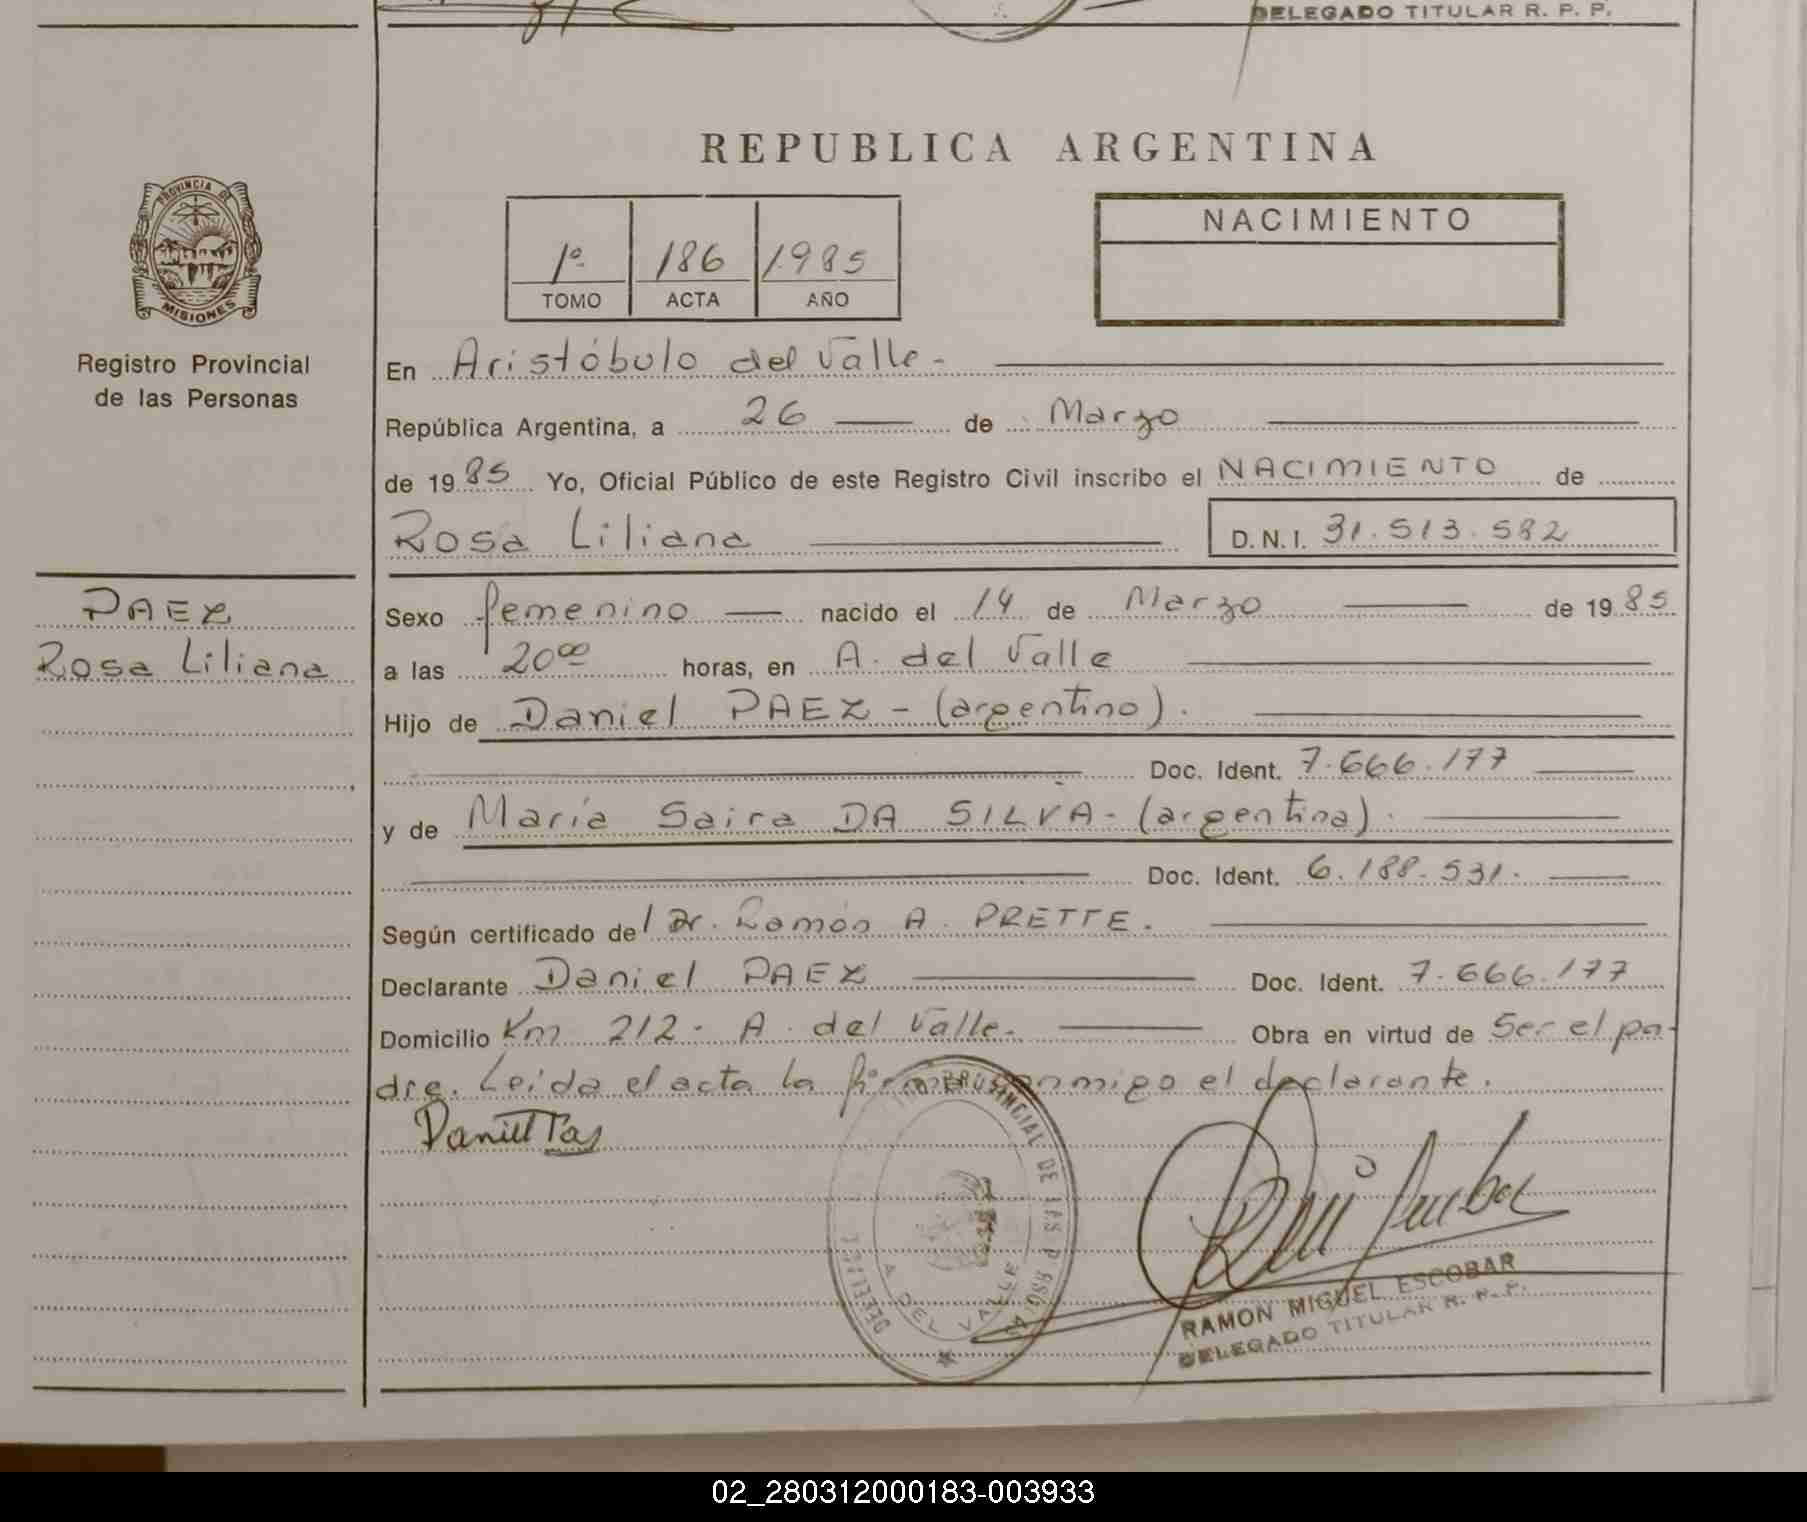 DELEGADO TITULAR R. P. P.
REPUBLICA ARGENTINA
PROVINCIA DE
MISIONES
Registro Provincial
de las Personas
1º 186 1985
TOMO ACTA AÑO
NACIMIENTO
En Aristóbulo del Valle.-
República Argentina, a 26 de Marzo
de 1985 Yo, Oficial Público de este Registro Civil inscribo el NACIMIENTO de
Rosa Liliana D.N.I. 31.513.582
PAEZ
Rosa Liliana
Sexo femenino nacido el 14 de Marzo de 1985
a las 20⁰⁰ horas, en A. del Valle
Hijo de Daniel PAEZ - (argentino).
Doc. Ident. 7.666.177
y de María Saira DA SILVA - (argentina).
Doc. Ident. 6.188.531.
Según certificado del Dr. Ramón A. PRETTE.
Declarante Daniel PAEZ Doc. Ident. 7.666.177
Domicilio Km 212 - A. del Valle. Obra en virtud de Ser el pa-
dre. Leída el acta la firma conmigo el declarante.
PROVINCIAL DE LAS
A. DEL VALLE
RAMON MIGUEL ESCOBAR
DELEGADO TITULAR R. P. P.
02_280312000183-003933